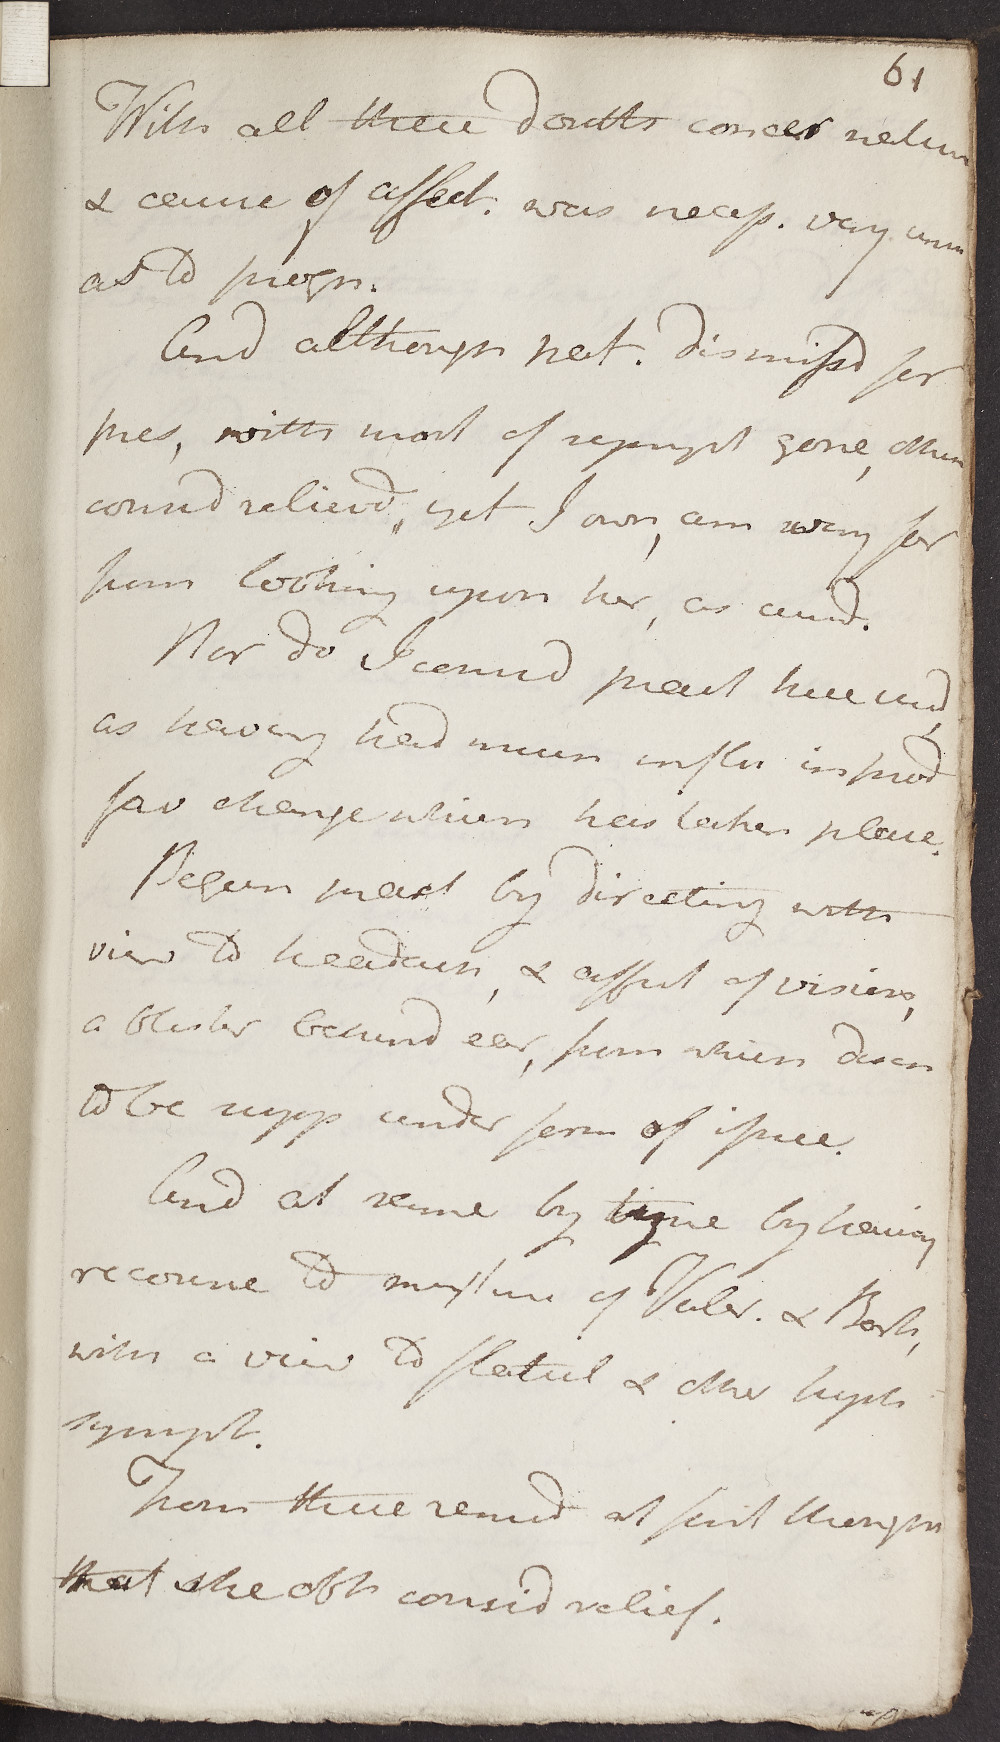 61
With all these doubts concer natur
& cause of affect. was necess. very
as to progn.
And although pat. dismissd for
pres, with most of sympt gone, others
consid relievd, yet I own, am very far
from looking upon her, as curd.
Nor do I consid pract here usd,
as having had much influ in prod
fav change which has taken place.
Begun pract by directing with
view to headach, & affect of vision,
a blister behind ear, from which disch
to be supp under form of issue.
And at same by tyme by having
recourse to mixture of Valer. & Bark,
with a view to flatul & other hyst
sympt.
From these remed at first though
that she obt consid relief.